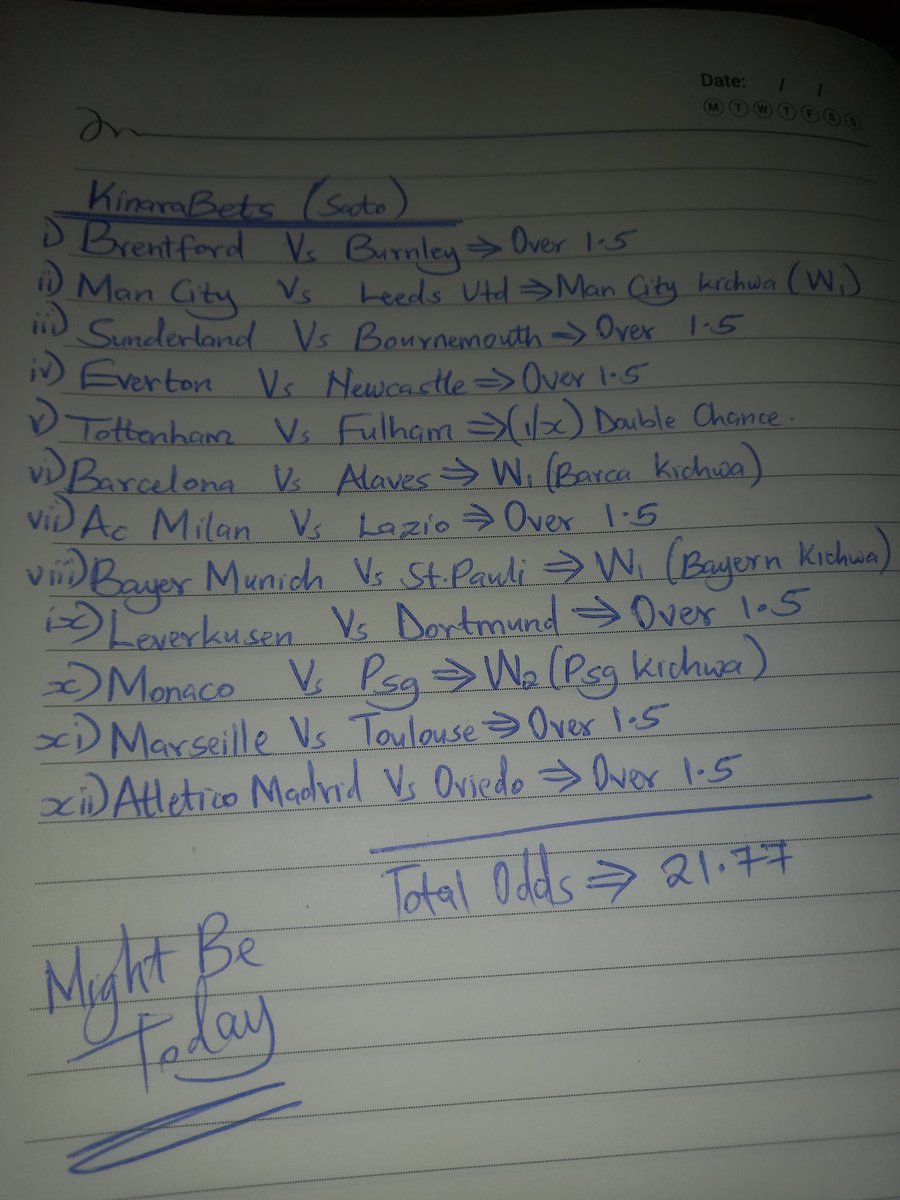 Date: / /
M T W T F S S
KinaraBets (Sato)
i) Brentford Vs Burnley ⇒ Over 1.5
ii) Man City Vs Leeds Utd ⇒ Man City kichwa (W1)
iii) Sunderland Vs Bournemouth ⇒ Over 1.5
iv) Everton Vs Newcastle ⇒ Over 1.5
v) Tottenham Vs Fulham ⇒ (1/x) Double Chance.
vi) Barcelona Vs Alaves ⇒ W1 (Barca kichwa)
vii) Ac Milan Vs Lazio ⇒ Over 1.5
viii) Bayer Munich Vs St. Pauli ⇒ W1 (Bayern kichwa)
ix) Leverkusen Vs Dortmund ⇒ Over 1.5
x) Monaco Vs Psg ⇒ W2 (Psg kichwa)
xi) Marseille Vs Toulouse ⇒ Over 1.5
xii) Atletico Madrid Vs Oviedo ⇒ Over 1.5
Total Odds ⇒ 21.77
Might Be
Today